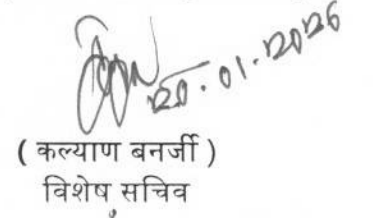 20.01.2026
( कल्याण बनर्जी )
विशेष सचिव